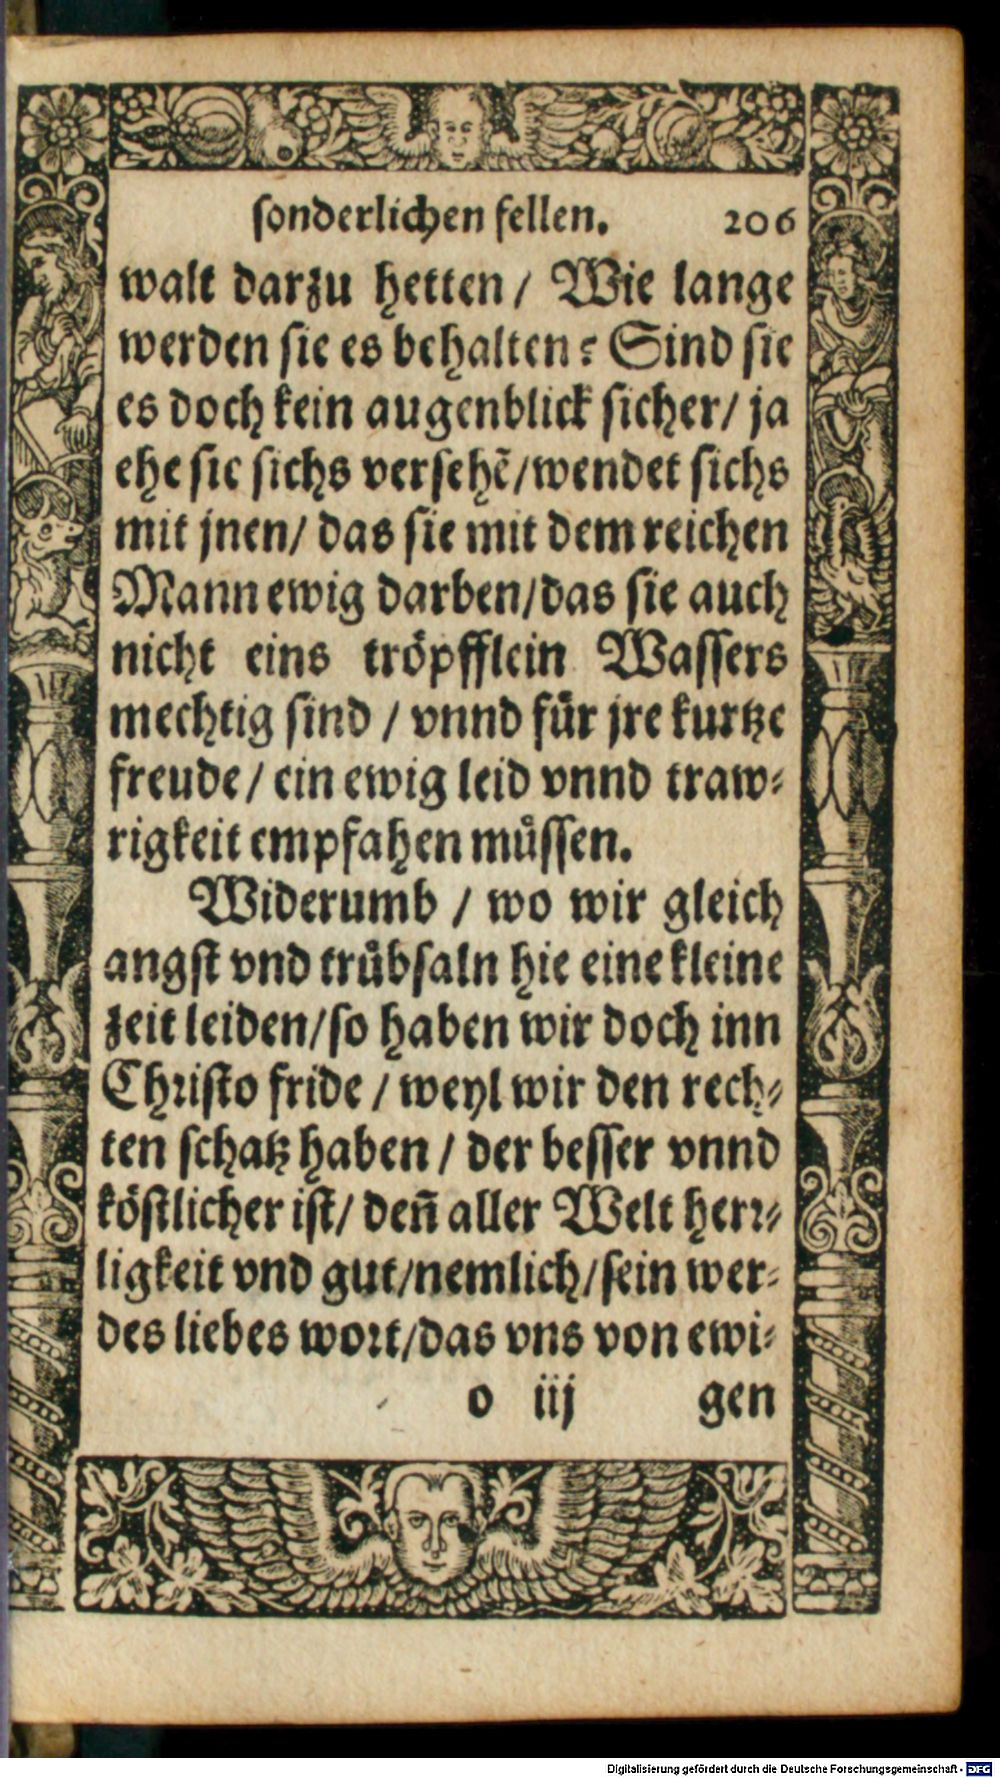 sonderlichen fellen. 206
walt darzu hetten / Wie lange
werden sie es behalten? Sind sie
es doch kein augenblick sicher / ja
ehe sie sichs versehẽ /wendet sichs
mit jnen / das sie mit dem reichen
Mann ewig darben /das sie auch
nicht eins tröpfflein Wassers
mechtig sind / vnnd fuͤr jre kurtze
freude / ein ewig leid vnnd traw-
rigkeit empfahen muͤssen.
Widerumb / wo wir gleich
angst vnd truͤbsaln hie eine kleine
zeit leiden /so haben wir doch inn
Christo fride / weyl wir den rech-
ten schatz haben / der besser vnnd
köstlicher ist / deñ aller Welt herr-
ligkeit vnd gut /nemlich /sein wer-
des liebes wort /das vns von ewi-
o iij gen
Digitalisierung gefördert durch die Deutsche Forschungsgemeinschaft - DFG